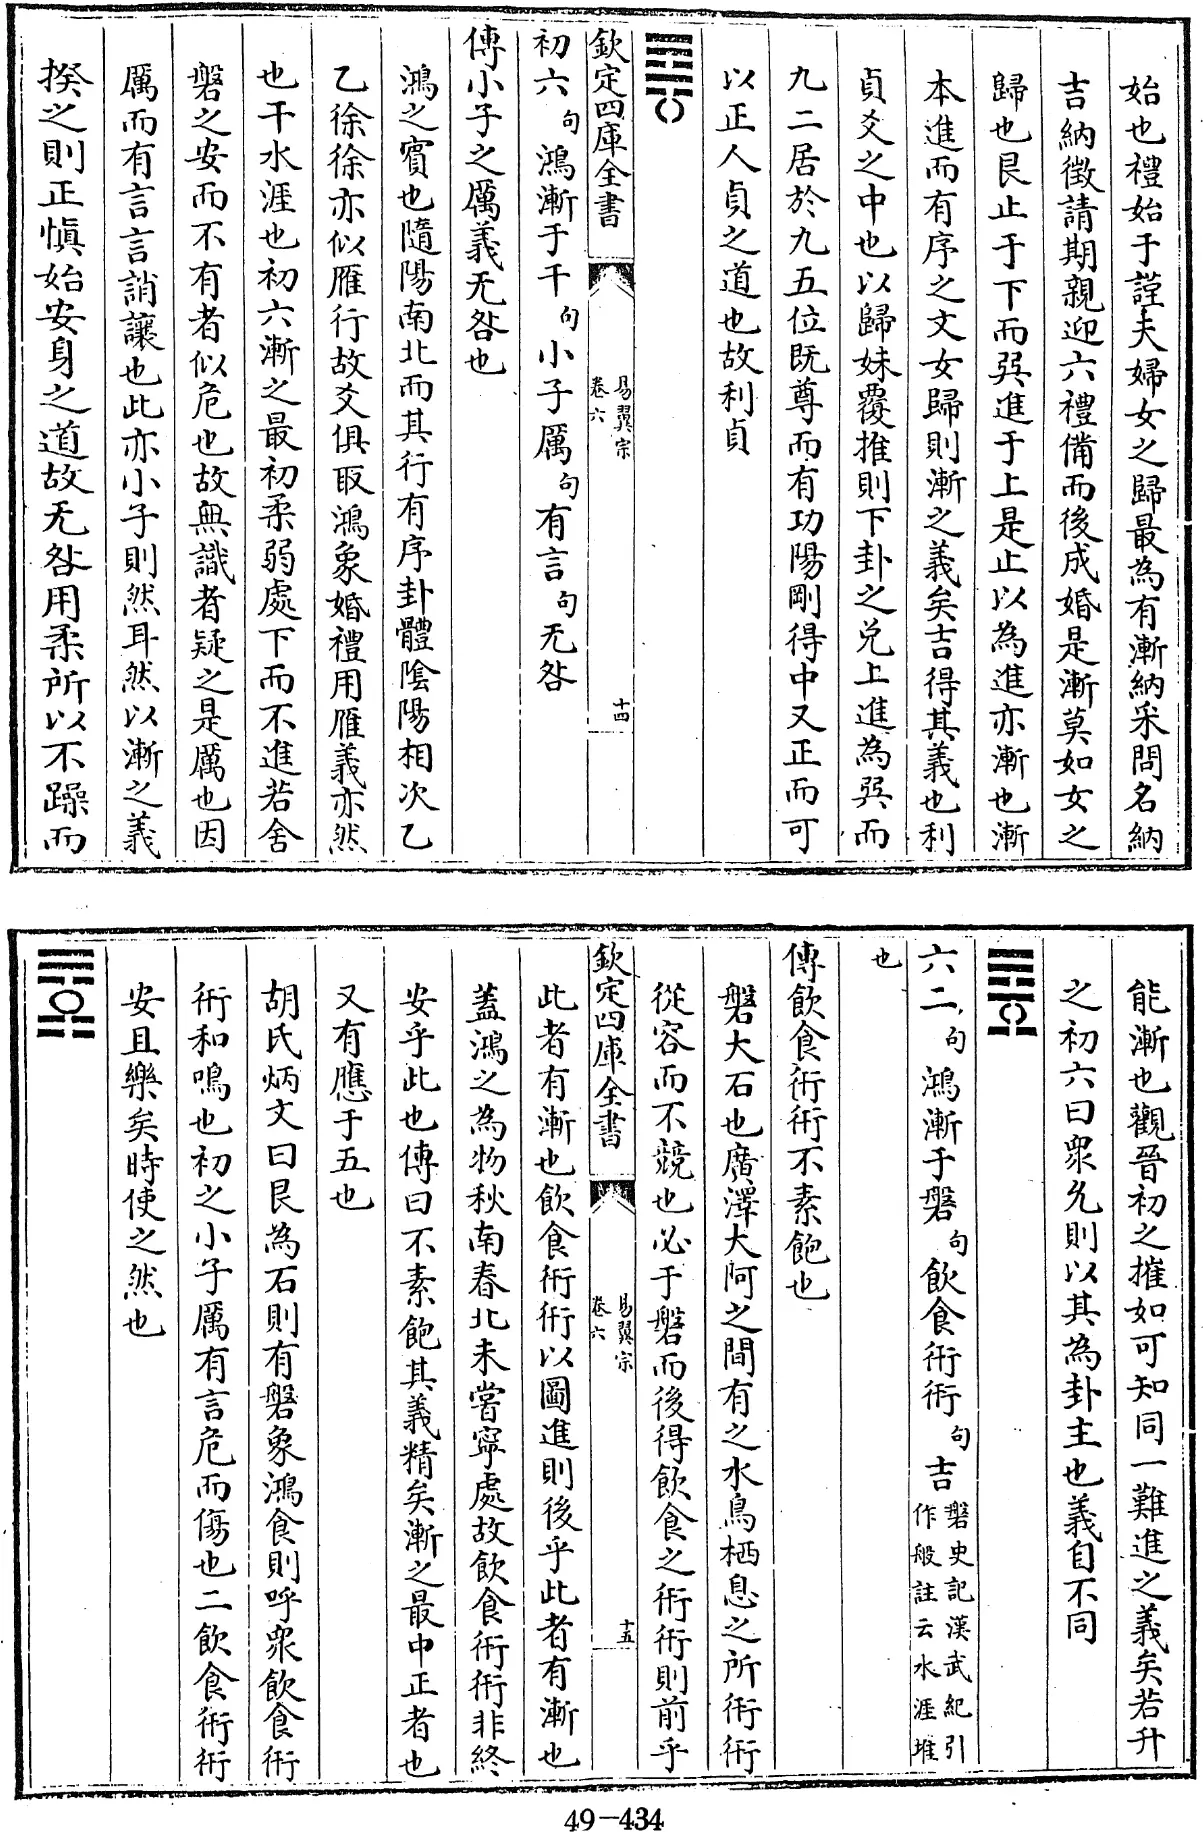 始也禮始于謹夫婦女之歸最為有漸納采問名納
吉納徵請期親迎六禮備而後成婚是漸莫如女之
歸也艮止于下而巽進于上是止以為進亦漸也漸
本進而有序之文女歸則漸之義矣吉得其義也利
貞爻之中也以歸妹覆推則下卦之兌上進為巽而
九二居於九五位既尊而有功陽剛得中又正而可
以正人貞之道也故利貞
欽定四庫全書
易翼宗
卷六
十四
初六句鴻漸于干句小子厲句有言句无咎
傳小子之厲義无咎也
鴻之賓也隨陽南北而其行有序卦體陰陽相次乙
乙徐徐亦似雁行故爻俱取鴻象婚禮用雁義亦然
也干水涯也初六漸之最初柔弱處下而不進若舍
磐之安而不有者似危也故無識者疑之是厲也因
厲而有言言誚讓也此亦小子則然耳然以漸之義
揆之則正慎始安身之道故无咎用柔所以不躁而
能漸也觀晉初之摧如可知同一難進之義矣若升
之初六曰衆允則以其為卦主也義自不同
六二句鴻漸于磐句飲食衎衎句吉磐史記漢武紀引
作般註云水涯堆
也
傳飲食衎衎不素飽也
磐大石也廣澤大阿之間有之水鳥栖息之所衎衎
從容而不競也必于磐而後得飲食之衎衎則前乎
欽定四庫全書
易翼宗
卷六
十五
此者有漸也飲食衎衎以圖進則後乎此者有漸也
蓋鴻之為物秋南春北未嘗寧處故飲食衎衎非終
安乎此也傳曰不素飽其義精矣漸之最中正者也
又有應于五也
胡氏炳文曰艮為石則有磐象鴻食則呼衆飲食衎
衎和鳴也初之小子厲有言危而傷也二飲食衎衎
安且樂矣時使之然也
49-434